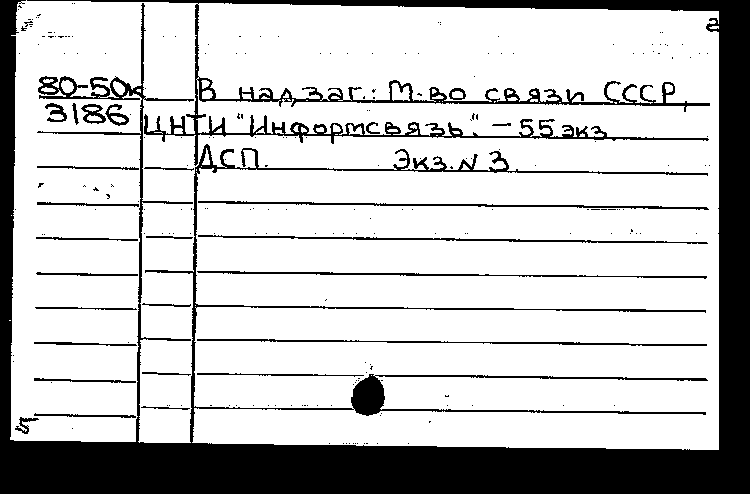 2
80-50к В надзаг.: М-во связи СССР,
3186 ЦНТИ "Информсвязь". - 55 экз.
ДСП. Экз. N 3.
5